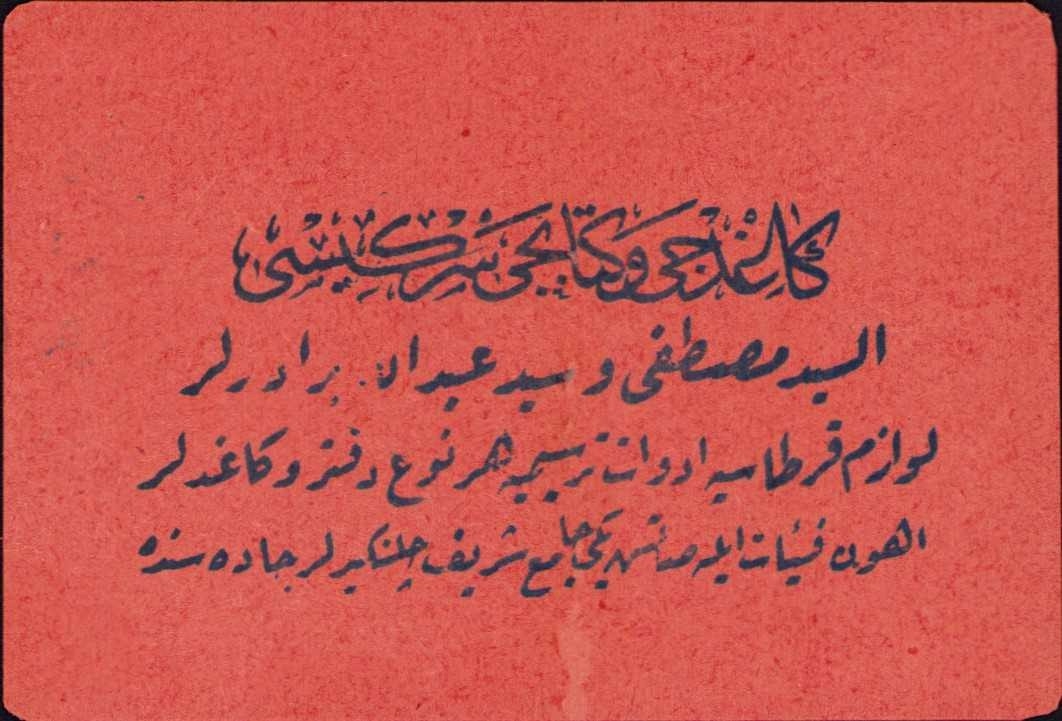 كاغدجى و كتابجى سركيسى
السيد مصطفى و سيد عبد الله برادرلر
لوازم قرطاسيه ادوات ترسيميه هر نوع دفتر و كاغدلر
اهون فيئات ايله يكى جامع شريف چلنكيرلر جاده سنده